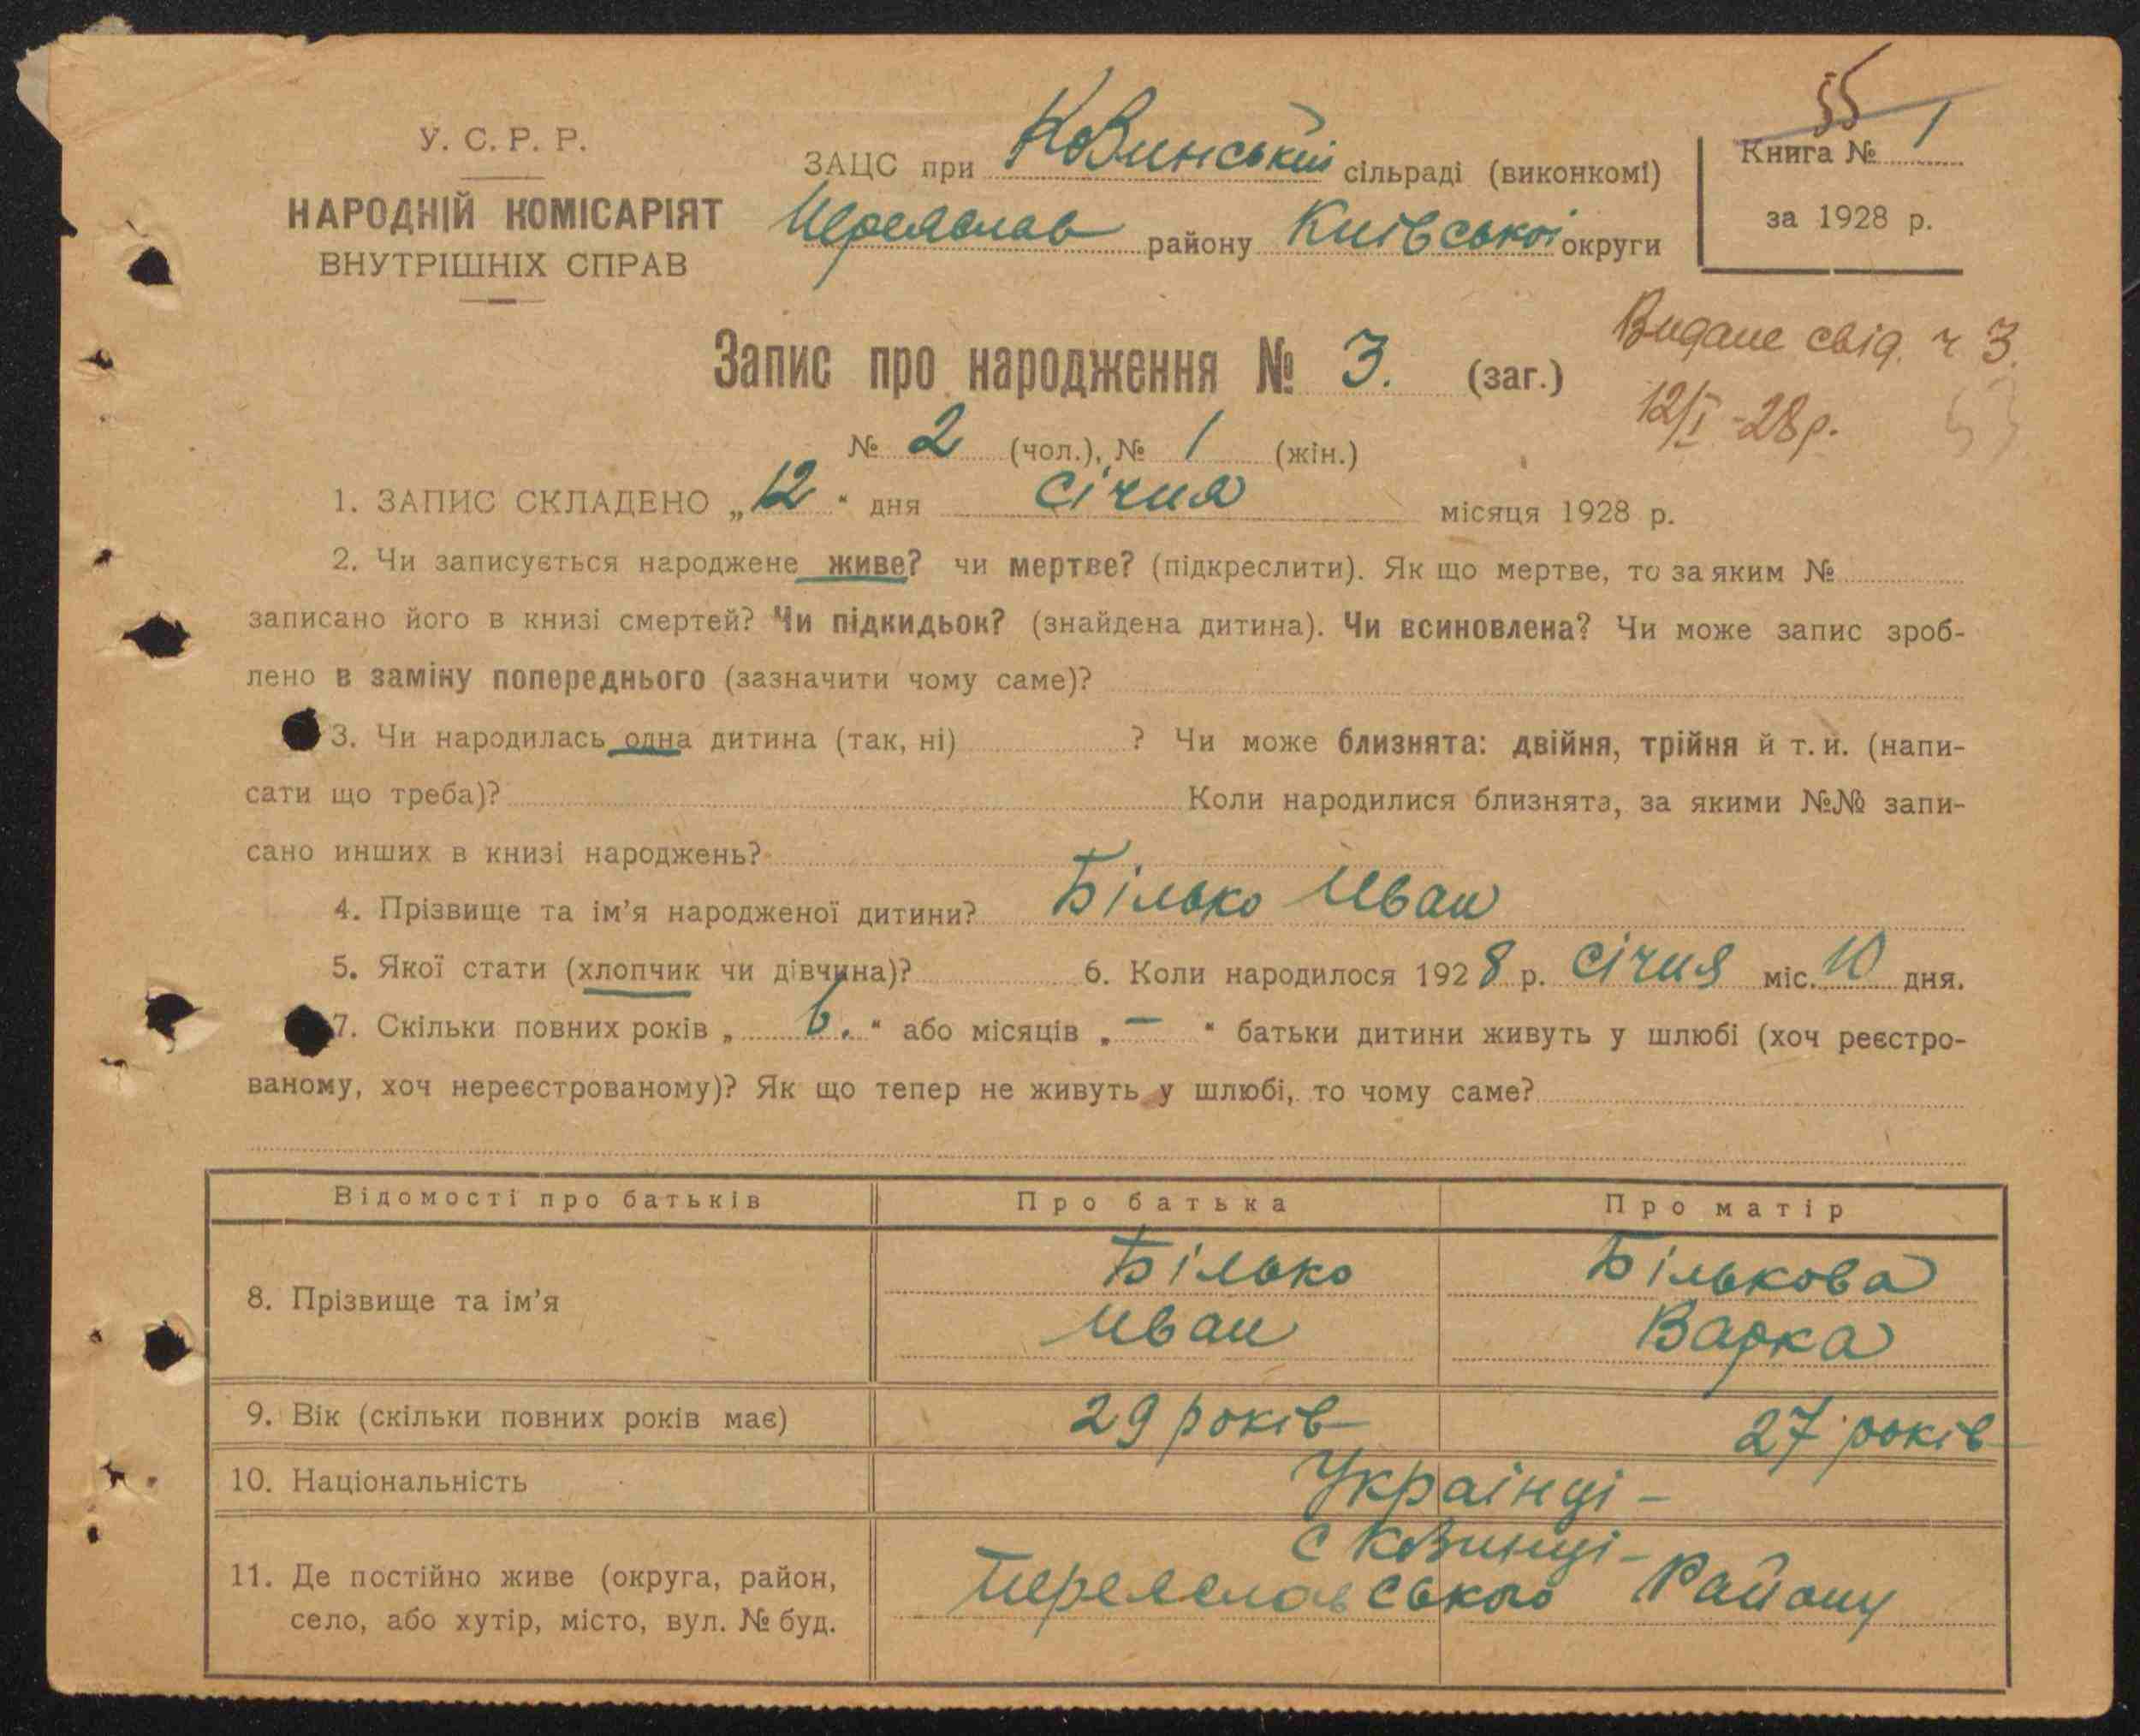 55
У. С. Р. Р.
НАРОДНІЙ КОМІСАРІЯТ
ВНУТРІШНІХ СПРАВ
ЗАЦС при Ковинській сільраді (виконкомі)
Переяслав району Київської округи
Книга № 1
за 1928 р.
Видане свід. ч 3.
12/I -28 р.
Запис про народження № 3. (заг.)
№ 2 (чол.), № 1 (жін.)
1. ЗАПИС СКЛАДЕНО „12“ дня січня місяця 1928 р.
2. Чи записується народжене живе? чи мертве? (підкреслити). Як що мертве, то за яким №
записано його в книзі смертей? Чи підкидьок? (знайдена дитина). Чи всиновлена? Чи може запис зроб-
лено в заміну попереднього (зазначити чому саме)?
3. Чи народилась одна дитина (так, ні) ? Чи може близнята: двійня, трійня й т. и. (напи-
сати що треба)? Коли народилися близнята, за якими №№ запи-
сано инших в книзі народжень?
4. Прізвище та ім’я народженої дитини? Білько Иван
5. Якої стати (хлопчик чи дівчина)? 6. Коли народилося 1928 р. січня міс. 10 дня.
7. Скільки повних років „ 6. “ або місяців „ – “ батьки дитини живуть у шлюбі (хоч реєстро-
ваному, хоч нереєстрованому)? Як що тепер не живуть у шлюбі, то чому саме?
Відомості про батьків Про батька Про матір
8. Прізвище та ім’я Білько Бількова
Иван Варка
9. Вік (скільки повних років має) 29 років 27 років
10. Національність Українці –
11. Де постійно живе (округа, район,
село, або хутір, місто, вул. № буд.
с Ковинці –
Переяславського Району